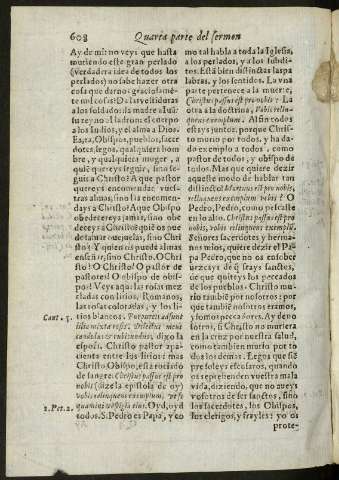 608 Quarta parte del sermon
Ay de mi! no veys que hasta
muriendo este gran perlado
(verdadera idea de todos los
perlados) no sabe hazer otra
cosa que darnos graciosamẽ-
te mil cosas? Da las vestiduras
a los soldados: la madre a Iuã:
su reyno al ladron: el cuerpo
a los Iudios, y el alma a Dios.
Ea, ea, Obispos, pueblos, sacer
dotes, legos, qualquiera hom
bre, y qualquiera muger, a
quiẽ quereys seguir, sino se-
guis a Christo? A que pastor
quereys encomendar vues-
tras almas, sino las encomen-
days a Christo? A que Obispo
obedecereys jamas, sino obe
deceys a Christo? quiẽ os pue
de tratar ouejuelas, sino Chri
sto? Y quien os puede almas
enseñar, sino Christo. O Chri
sto! O Christo! O pastor de
pastores! O Obispo de obis-
pos! Veys aqui las rosas mez
cladas con lirios, Romanos,
las rosas coloradas, y los li-
Cant. 5. rios blancos.
candidus & rubicundus, dize la
espos. Christo pastor apa-
ciente entre los lirios: mas
Christo Obispo, està rociado
de sangre. Christus passus est pro
nobis (dize la epistola de oy)
vobis relinquens exemplum, vt se
1. Pet. 2. quamini vestigia eius. Oyd, oyd
todos. S. Pedro es Papa, y co
mo tal habla a toda la Iglesia,
a los perlados, y a los subdi-
tos. Està bien distinctas las pa
labras, y los sentidos. La vna
parte pertenece a la muerte,
Christus passus est pro nobis: La
otra a la doctrina, Vobis relin-
quens exemplum. Al fin todos
estays juntos. porque Chris-
to murio por todos, y ha da-
do exemplo a todos. como
pastor de todos, y obispo de
todos. Mas que quiere dezir
aquelle modo de hablar tan
distincto? Mortuus est pro nobis,
relinquens exemplum vobis? O
Pedro, Pedro, como pescaste
en lo alto. Christus passus est pro
nobis, vobis relinquens exemplũ.
Señores sacerdotes y herma-
nos mios, quiere dezir el Pa-
pa Pedro, que no os ensober
uezcays de q̃ seays sanctos,
de que quiteys los peccados
de los pueblos. Christo mu-
rio tambiẽ por nosotros: por
que tambiẽ nosotros eramos,
y somos peccadores. Ay de no
sotros, si Christo no muriera
en la cruz por nuestra salud,
como tambien murio por to
dos los demas. Legos que siẽ
pre soleys escusaros, quando
os reprehenden vuestra mala
vida, diziendo, que no aueys
vosotros de ser sanctos, sino
los sacerdotes, los Obispos,
los clerigos, y frayles: yo os
prote-